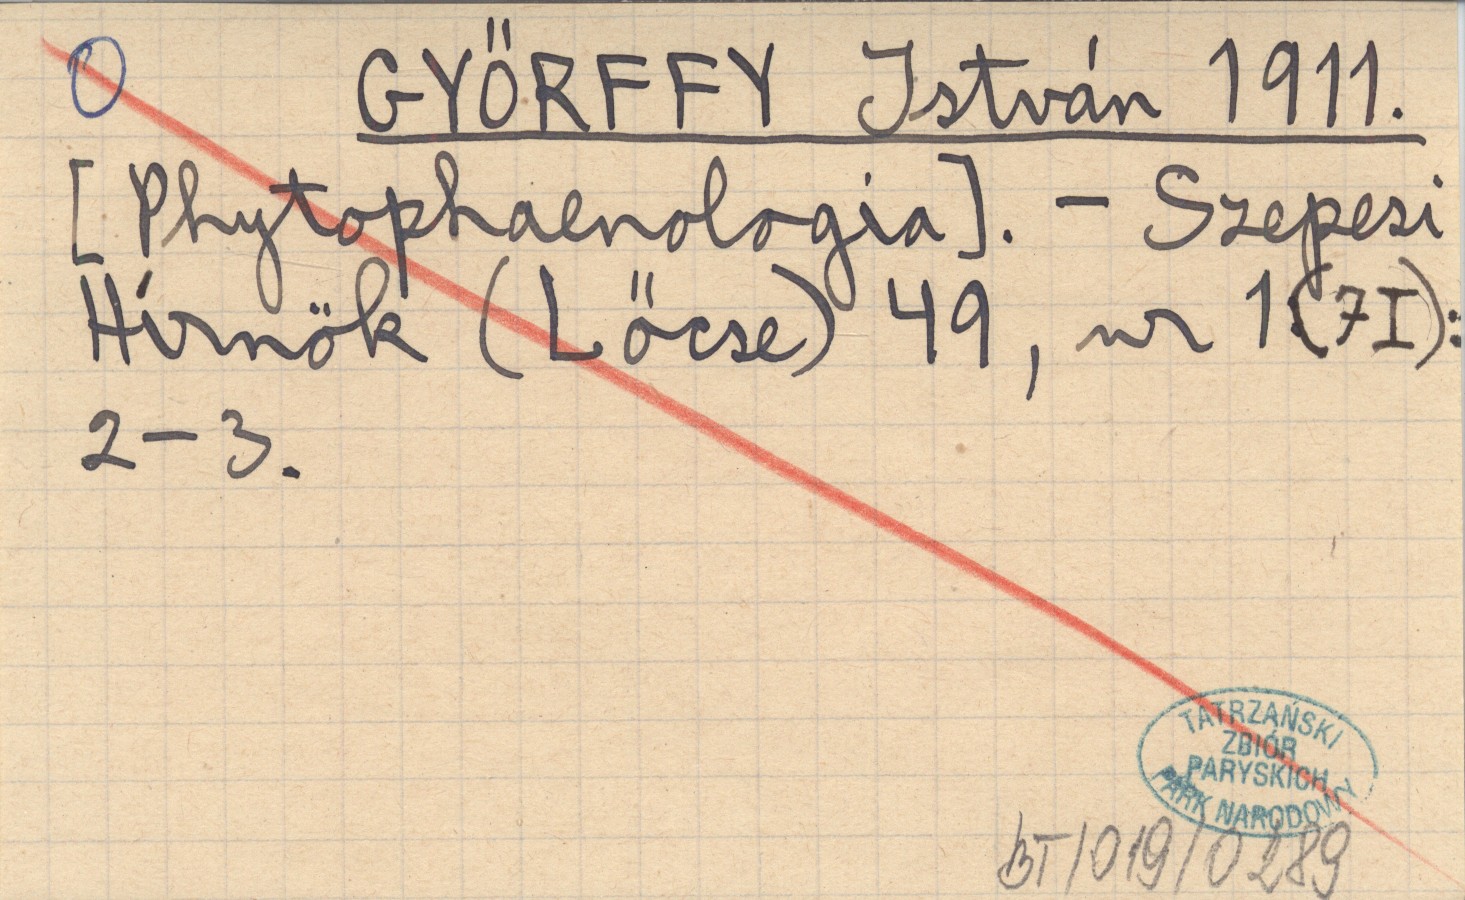 GYŐRFFY István 1911.
[Phytophaenologia]. - Szepesi
Hírnök (Lőcse) 49, nr 1 (7 I):
2-3.
TATRZAŃSKI
ZBIÓR
PARYSKICH
PARK NARODOWY
BT/019/0289